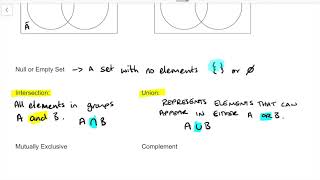 Ā
Null or Empty Set → A set with no elements {} or ∅
Intersection:
All elements in groups
A and B. A ∩ B
Union:
REPRESENTS ELEMENTS THAT CAN
APPEAR IN EITHER A OR B.
A ∪ B
Mutually Exclusive
Complement